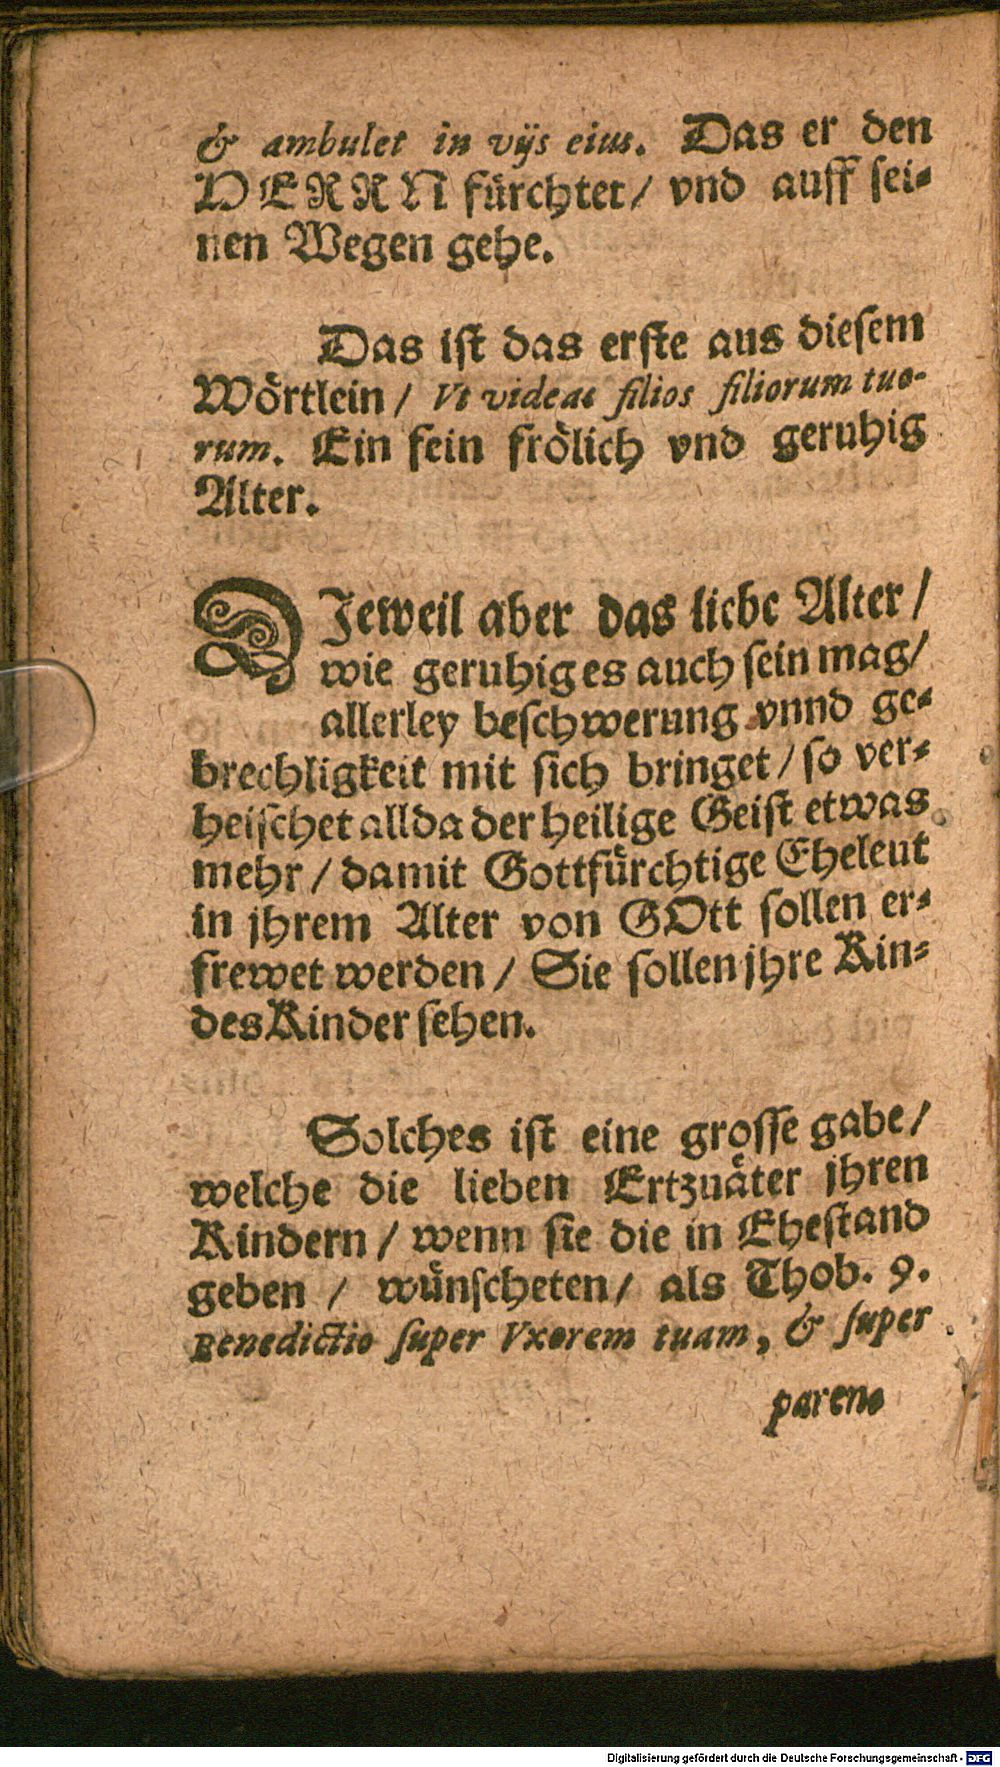 & ambulet in vijs eius. Das er den
HERRN fürchtet / vnd auff sei-
nen Wegen gehe.
Das ist das erste aus diesem
Wörtlein / Vt videas filios filiorum tuo-
rum. Ein fein frölich vnd geruhig
Alter.
DJeweil aber das liebe Alter /
wie geruhig es auch sein mag /
allerley beschwerung vnnd ge-
brechligkeit mit sich bringet / so ver-
heischet allda der heilige Geist etwas
mehr / damit Gottfürchtige Eheleut
in jhrem Alter von GOtt sollen er-
frewet werden / Sie sollen jhre Kin-
des Kinder sehen.
Solches ist eine grosse gabe /
welche die lieben Ertzuäter jhren
Kindern / wenn sie die in Ehestand
geben / wünscheten / als Thob. 9.
Benedictio super Vxorem tuam, & super
paren-
Digitalisierung gefördert durch die Deutsche Forschungsgemeinschaft - DFG